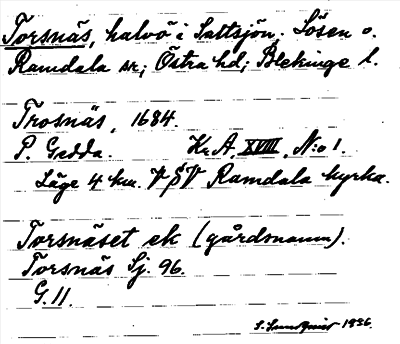 Torsnäs, halvö i Sattsjön. Lösen o.
Ramdala sn; Östra hd; Blekinge l.
Trosnäs, 1684.
P. Gedda. Kr. A. XVIII, N:o 1.
Läge 4 km. V S V Ramdala kyrka.
Torsnäset ek (gårdsnamn).
Torsnäs Sj. 96.
G. 11.
S. Lundquist 1936.